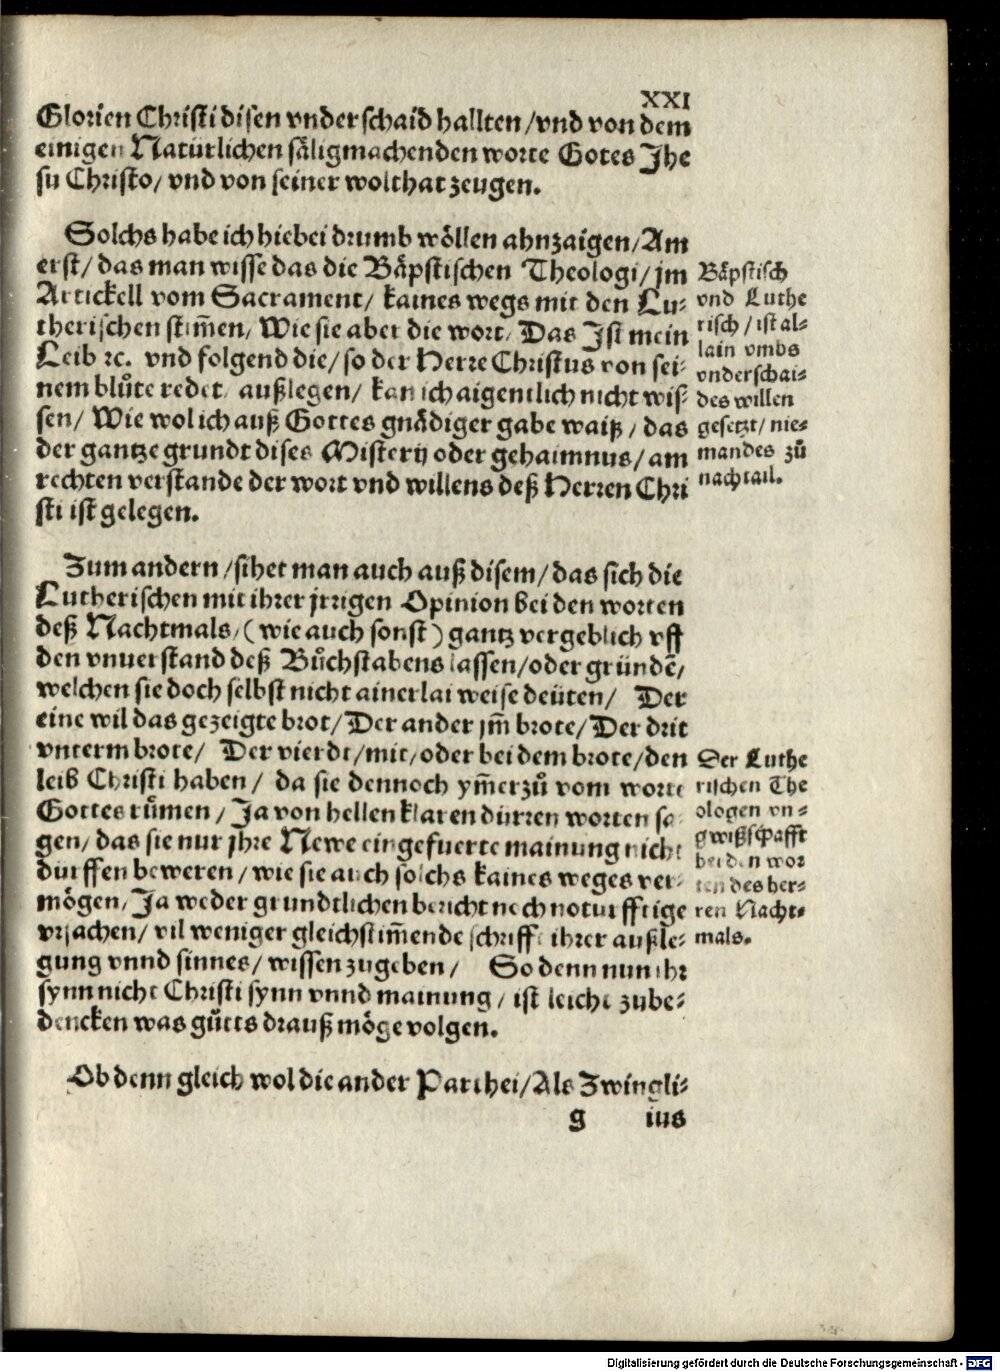 XXI
Glorien Christi disen vnderschaid hallten/vnd von dem
einigen Natürlichen säligmachenden worte Gotes Jhe
su Christo/ vnd von seiner wolthat zeugen.
Solchs habe ich hiebei drumb wöllen ahnzaigen/Am
erst/ das man wisse das die Bäpstischen Theologi/jm
Artickell vom Sacrament/ kaines wegs mit den Lu-
therischen stim̃en/ Wie sie aber die wort/ Das Jst mein
Leib ꝛc. vnd folgend die/ so der Herre Christus von sei-
nem blůte redet/ außlegen/ kan ich aigentlich nicht wis-
sen/ Wie wol ich auß Gottes gnädiger gabe waiß/ das
der gantze grundt dises Mistery oder gehaimnus/ am
rechten verstande der wort vnd willens deß Herren Chri
sti ist gelegen.
Bäpstisch
vnd Luthe
risch/ ist al-
lain vmbs
vnderschai-
des willen
gesetzt/ nie-
mandes zů
nachtail.
Zum andern/sihet man auch auß disem/ das sich die
Lutherischen mit ihrer jrrigen Opinion bei den worten
deß Nachtmals/(wie auch sonst) gantz vergeblich vff
den vnuerstand deß Bůchstabens lassen/oder gründẽ/
welchen sie doch selbst nicht ainerlai weise deüten/ Der
eine wil das gezeigte brot/ Der ander jm̃ brote/ Der drit
vnterm brote/ Der vierdt/mit/oder bei dem brote/den
leib Christi haben/ da sie dennoch ym̃erzů vom worte
Gottes růmen/ Ja von hellen klaren dürren worten sa-
gen/ das sie nur jhre Newe eingefuerte mainung nicht
durffen beweren/ wie sie auch solchs kaines weges ver-
mögen/ Ja weder grundtlichen bericht noch noturfftige
vrsachen/ vil weniger gleichstim̃ende schrifft ihrer außle-
gung vnnd sinnes/ wissen zugeben/ So denn nun ihr
synn nicht Christi synn vnnd mainung/ ist leicht zube-
dencken was gůtts drauß möge volgen.
Der Luthe
rischen The
ologen vn-
gwißschafft
bei den wor
ten des her-
ren Nacht-
mals.
Ob denn gleich wol die ander Parthei/Als Zwingli-
g ius
Digitalisierung gefördert durch die Deutsche Forschungsgemeinschaft - DFG